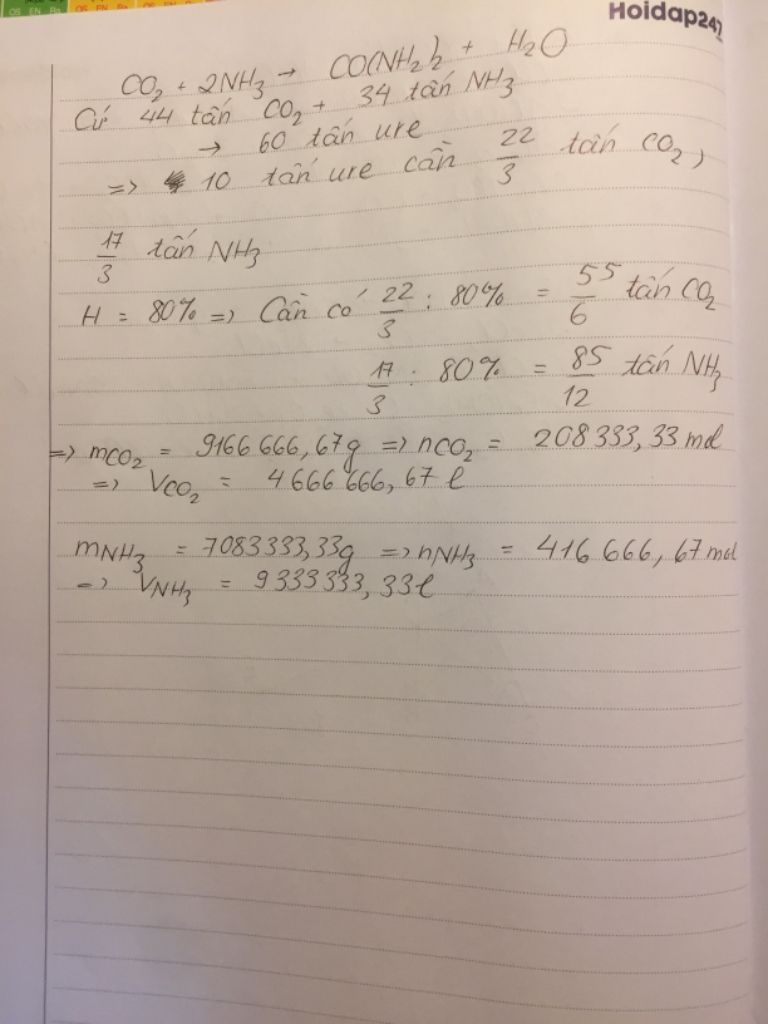 OS EN Ba OS EN Ba OS EN
Hoidap247
CO₂ + 2NH₃ → CO(NH₂)₂ + H₂O
Cứ 44 tấn CO₂ + 34 tấn NH₃
→ 60 tấn ure
=> 10 tấn ure cần 22/3 tấn CO₂,
17/3 tấn NH₃
H = 80% => Cần có 22/3 : 80% = 55/6 tấn CO₂
17/3 : 80% = 85/12 tấn NH₃
=> mCO₂ = 9166 666,67g => nCO₂ = 208 333,33 mol
=> VCO₂ = 4 666 666,67 l
mNH₃ = 7083333,33g => nNH₃ = 416 666,67 mol
=> VNH₃ = 9 333 333,33 l